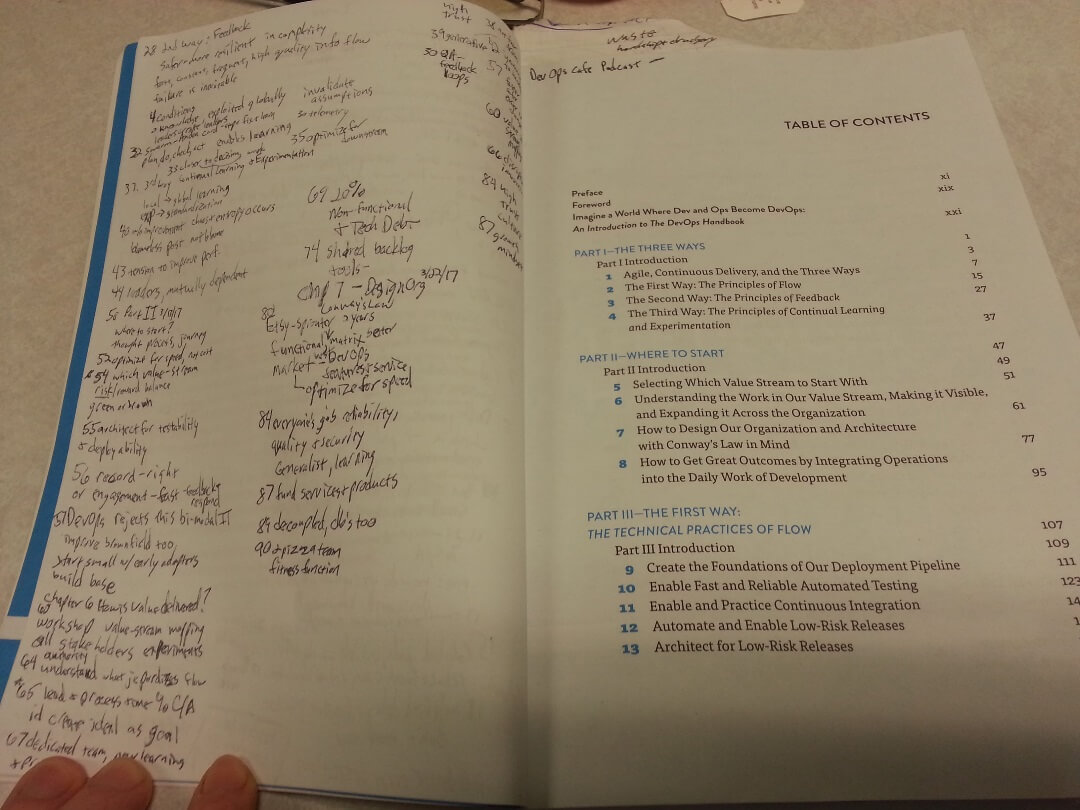 28 2nd way: Feedback
safer + more resilient in complexity
frequent, high quality info flow
failure is inevitable
4 conditions
knowledge, exploited globally
leaders create leaders
32 swarm - Andon cord
plan, do, check, act enables learning
33 closer to decisions
37. 3rd way continual learning + experimentation
local → global learning
standardization
chaos + entropy occurs
blameless post not blame
43 tension to improve perf.
44 leaders, mutually dependent
50 Part II
where to start?
thought process, journey
52 optimize for speed, not cost
54 which value-stream
risk/reward balance
green or brown
55 architect for testability
+ deployability
56 record-right
or engagement-fast feedback
respond
57 DevOps rejects this bi-modal IT
improve brownfield too,
start small w/ early adopters
build base
60 Chapter 6 How is value delivered?
workshop value-stream mapping
all stakeholders experiments
authority
64 understand what jepordizes flow
65 lead + process time % C/A
id create ideal as goal
67 dedicated team, new learning
invalidate
assumptions
30 telemetry
35 optimize for
downstream
69 20%
Non-functional
+ Tech Debt
74 shared backlog
tools-
Chp 7 - Design Org 3/22/17
Conway's Law
82
Etsy-sprouter 2 years
functional matrix better
market - DevOps
feature + service
optimize for speed
84 everyone's job reliability,
quality + security
Generalist, learning
87 fund services + products
89 decoupled, db's too
90 2 pizza team
fitness function
high
trust
39 generative
30 QA-
feedback
loops
57
60 value
66
84 high
trust
culture
87 growth
mindset
waste
DevOps Cafe Podcast -
TABLE OF CONTENTS
Preface xi
Foreword xix
Imagine a World Where Dev and Ops Become DevOps:
An Introduction to The DevOps Handbook xxi
PART I—THE THREE WAYS 1
Part I Introduction 3
1 Agile, Continuous Delivery, and the Three Ways 7
2 The First Way: The Principles of Flow 15
3 The Second Way: The Principles of Feedback 27
4 The Third Way: The Principles of Continual Learning
and Experimentation 37
PART II—WHERE TO START 47
Part II Introduction 49
5 Selecting Which Value Stream to Start With 51
6 Understanding the Work in Our Value Stream, Making it Visible,
and Expanding it Across the Organization 61
7 How to Design Our Organization and Architecture
with Conway's Law in Mind 77
8 How to Get Great Outcomes by Integrating Operations
into the Daily Work of Development 95
PART III—THE FIRST WAY:
THE TECHNICAL PRACTICES OF FLOW 107
Part III Introduction 109
9 Create the Foundations of Our Deployment Pipeline 111
10 Enable Fast and Reliable Automated Testing 123
11 Enable and Practice Continuous Integration
12 Automate and Enable Low-Risk Releases
13 Architect for Low-Risk Releases